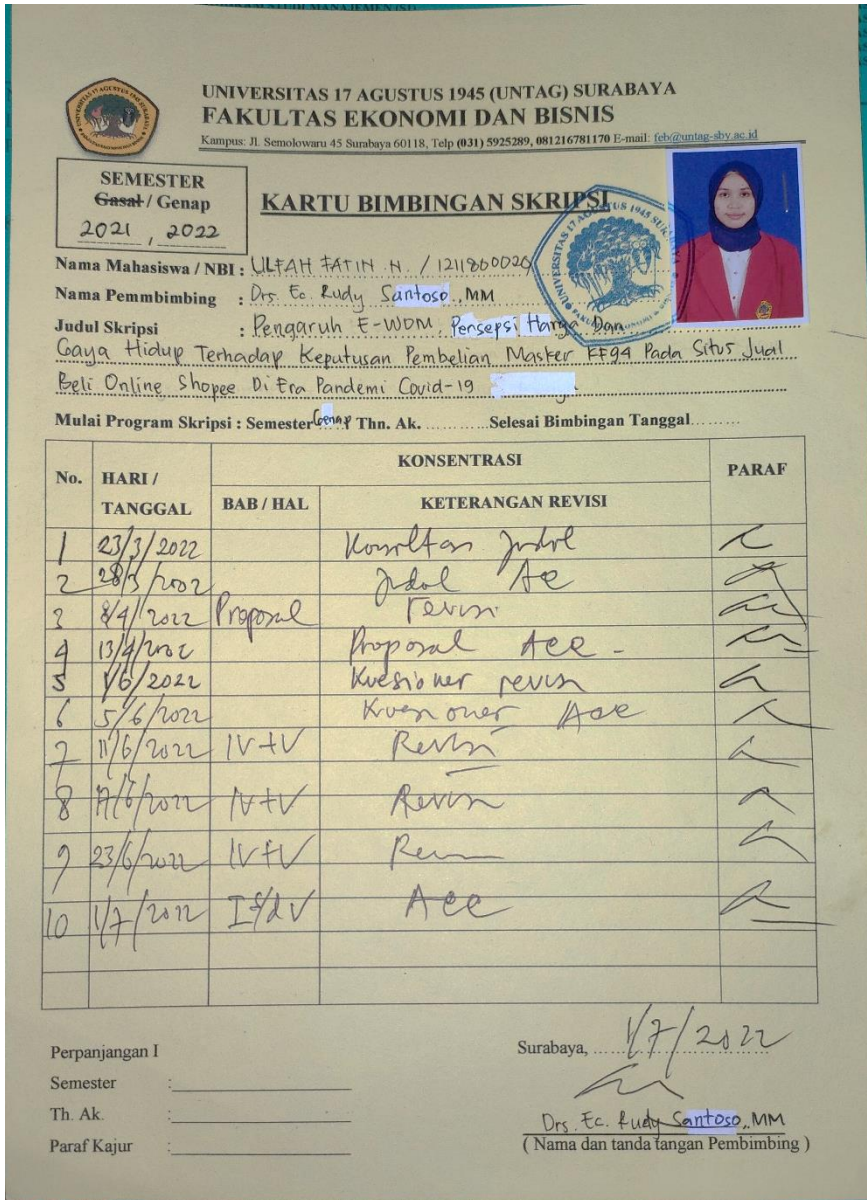 UNIVERSITAS 17 AGUSTUS 1945 (UNTAG) SURABAYA
FAKULTAS EKONOMI DAN BISNIS
Kampus: Jl. Semolowaru 45 Surabaya 60118, Telp (031) 5925289, 081216781170 E-mail: feb@untag-sby.ac.id
SEMESTER
Gasal / Genap
2021 , 2022
KARTU BIMBINGAN SKRIPSI
Nama Mahasiswa / NBI : ULFAH FATIN N. / 1211800020
Nama Pemmbimbing : Drs. Ec. Rudy Santoso.,MM
Judul Skripsi : Pengaruh E-WOM, Persepsi Harga Dan
Gaya Hidup Terhadap Keputusan Pembelian Masker KF94 Pada Situs Jual
Beli Online Shopee Di Era Pandemi Covid-19
Mulai Program Skripsi : Semester Genap Thn. Ak. ............Selesai Bimbingan Tanggal.........
No. HARI / TANGGAL KONSENTRASI PARAF
BAB / HAL KETERANGAN REVISI
1 23/3/2022 Konsultasi Judul
2 28/3/2022 Judul Acc
3 8/4/2022 Proposal revisi
4 13/4/2022 Proposal Acc -
5 1/6/2022 Kuesioner revisi
6 5/6/2022 Kuesioner Acc
7 11/6/2022 IV+V Revisi
8 17/6/2022 IV+V Revisi
9 23/6/2022 IV+V Revisi
10 1/7/2022 I s/d V Acc
Perpanjangan I
Semester :
Th. Ak. :
Paraf Kajur :
Surabaya, 1/7/2022
Drs. Ec. Rudy Santoso.,MM
( Nama dan tanda tangan Pembimbing )